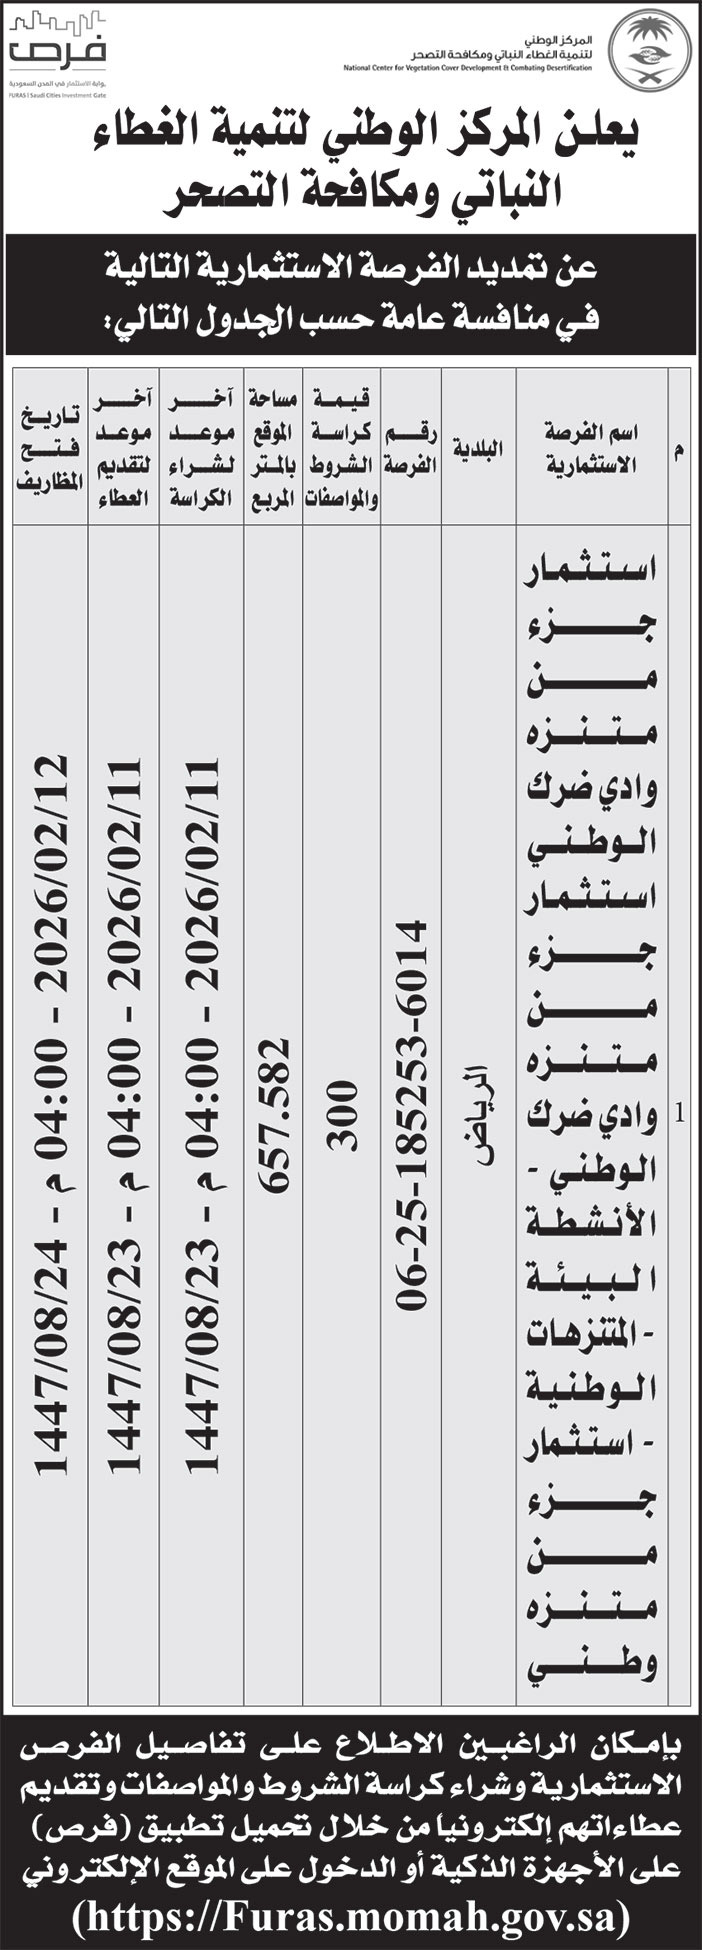 فرص
بوابة الاستثمار في المدن السعودية
FURAS | Saudi Cities Investment Gate
المركز الوطني
لتنمية الغطاء النباتي ومكافحة التصحر
National Center for Vegetation Cover Development & Combating Desertification
يعلن المركز الوطني لتنمية الغطاء
النباتي ومكافحة التصحر
عن تمديد الفرصة الاستثمارية التالية
في منافسة عامة حسب الجدول التالي:
م
اسم الفرصة
الاستثمارية
البلدية
رقم
الفرصة
قيمة
كراسة
الشروط
والمواصفات
مساحة
الموقع
بالمتر
المربع
آخر
موعد
لشراء
الكراسة
آخر
موعد
لتقديم
العطاء
تاريخ
فتح
المظاريف
1
استثمار
جزء
من
متنزه
وادي ضرك
الوطني
استثمار
جزء
من
متنزه
وادي ضرك
الوطني -
الأنشطة
البيئة
- المتنزهات
الوطنية
- استثمار
جزء
من
متنزه
وطني
الرياض
06-25-185253-6014
300
657.582
1447/08/23 - 04:00 م - 2026/02/11
1447/08/23 - 04:00 م - 2026/02/11
1447/08/24 - 04:00 م - 2026/02/12
بإمكان الراغبين الاطلاع على تفاصيل الفرص
الاستثمارية وشراء كراسة الشروط والمواصفات وتقديم
عطاءاتهم إلكترونياً من خلال تحميل تطبيق (فرص)
على الأجهزة الذكية أو الدخول على الموقع الإلكتروني
(https://Furas.momah.gov.sa)